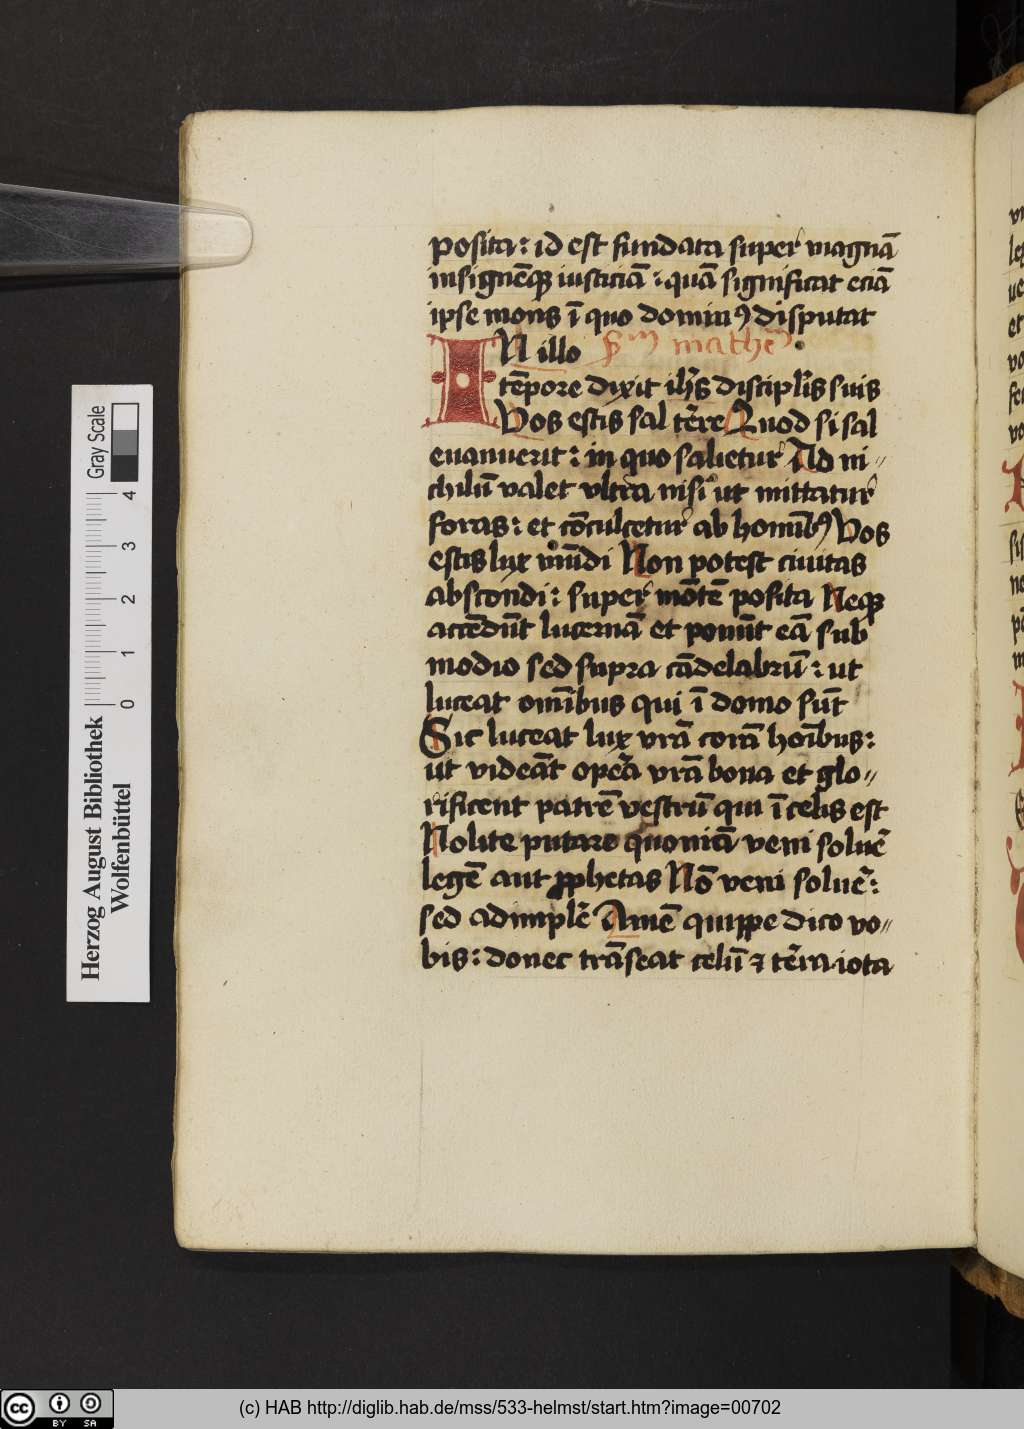 posita: id est fundata super magnā
insignēqꝫ iusticiā: quā significat eciā
ipse mons ī quo dominꝰ disputat
IN illo Sm mathe᷒
tēpore dixit ihūs disciplis suis
Vos estis sal tēre Quod si sal
euanuerit: in quo salietur Ad ni〃
chilū valet vltra nisi ut mittatur
foras: et cōculcetur ab homībꝰ Vos
estis lux mūdi Non potest ciuitas
abscondi: super mōtē posita Neqꝫ
accēdūt lucernā et ponūt eā sub
modio sed supra cādelabrū: ut
luceat omībus qui ī domo sūt
Sic luceat lux vrā corā hoībus:
ut videāt opera vrā bona et glo〃
rificent patrē vestrū qui ī celis est
Nolite putare quoniā veni soluē
legē aut ꝓphetas Nō veni soluē:
sed adimplē Amē quippe dico vo〃
bis: donec trāseat celū ⁊ tēra iota
Herzog August Bibliothek
Wolfenbüttel
0 1 2 3 4
Gray Scale
cc BY SA
(c) HAB http://diglib.hab.de/mss/533-helmst/start.htm?image=00702